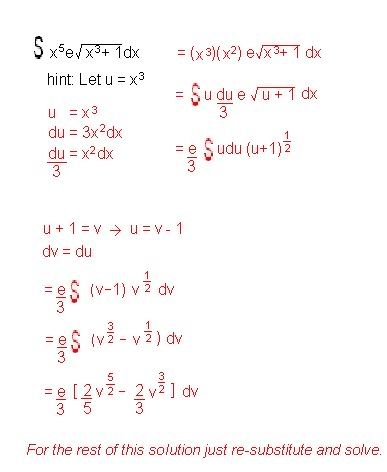 ∫ x⁵e√x³+ 1dx
= (x³)(x²) e√x³+ 1 dx
hint: Let u = x³
= ∫ u du/3 e √u + 1 dx
u = x³
du = 3x²dx
du/3 = x²dx
= e/3 ∫ udu (u+1)^1/2
u + 1 = v → u = v - 1
dv = du
= e/3 ∫ (v–1) v^1/2 dv
= e/3 ∫ (v^3/2 – v^1/2) dv
= e/3 [2/5 v^5/2 – 2/3 v^3/2] dv
For the rest of this solution just re-substitute and solve.